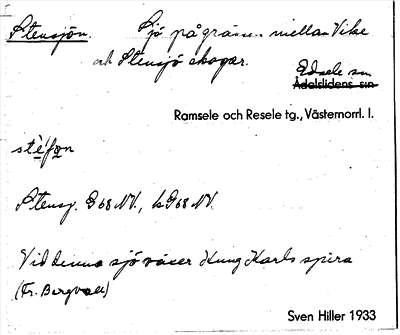 Stensjön. Sjö på gränsen mellan Vike
och Stensjö skogar.
Edsele sn
Ådalslidens sn
Ramsele och Resele tg., Västernorrl. l.
Stensj. G 68 NV., LG 68 NV.
Vid denna sjö växer Kung Karls spira
(Fr. Bergvall)
Sven Hiller 1933